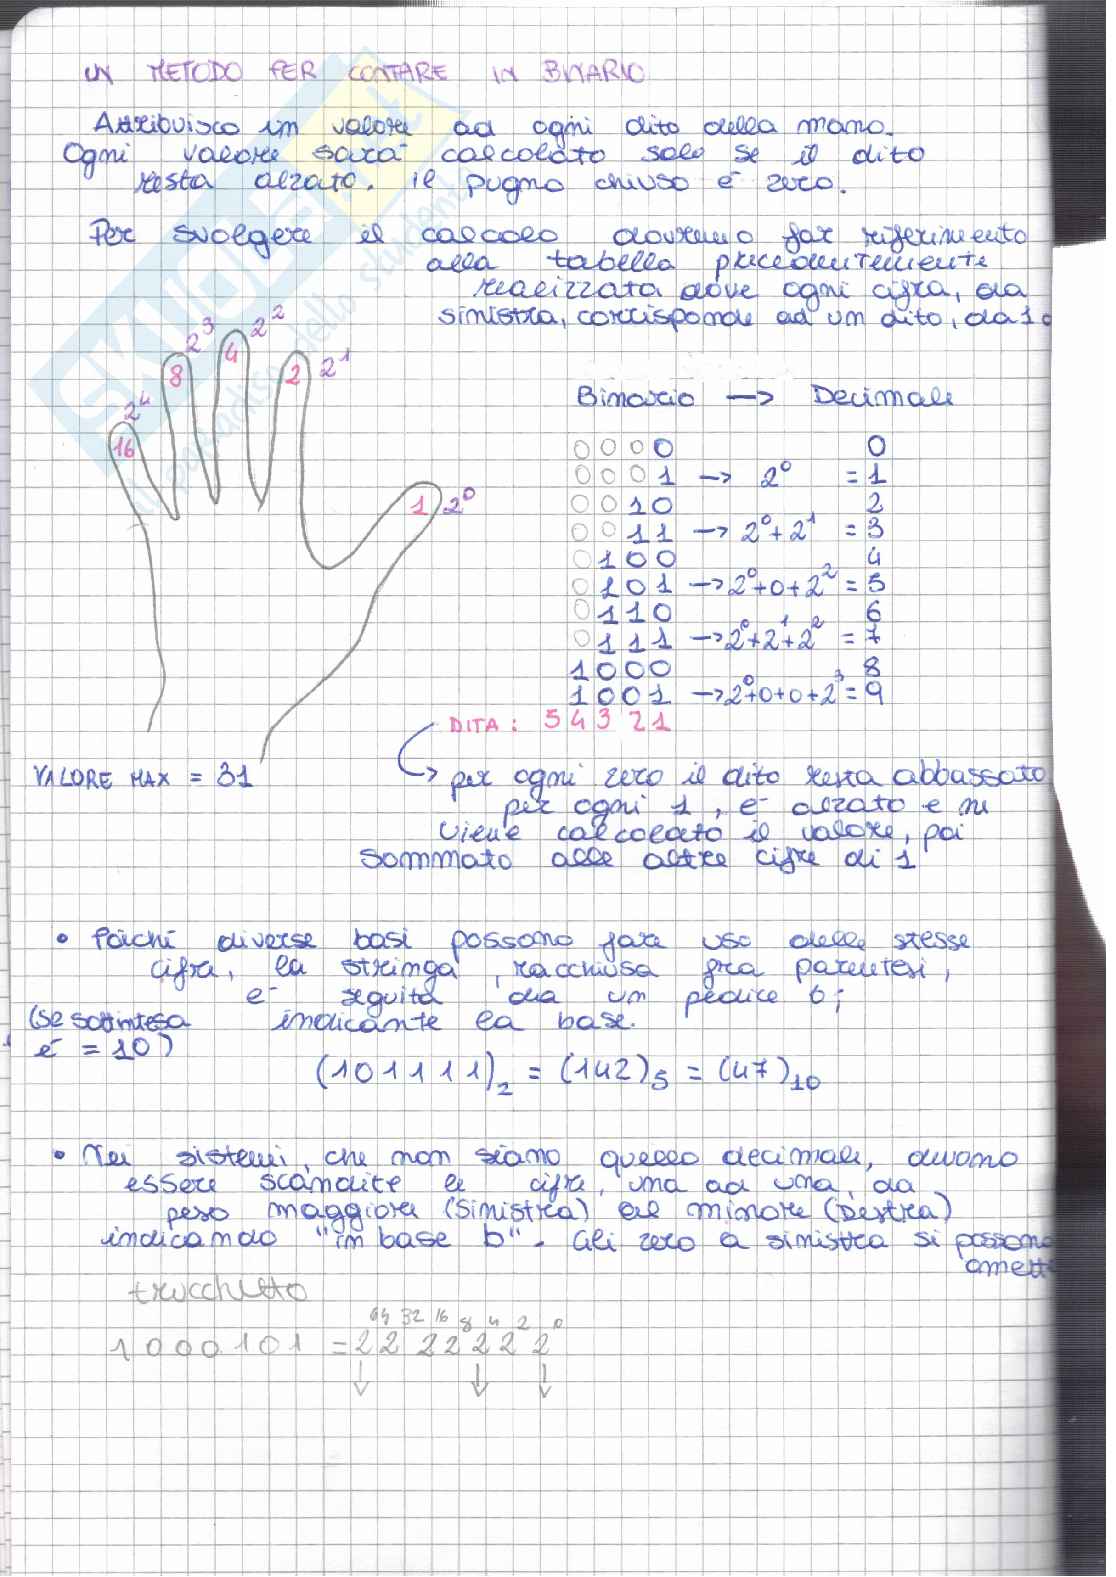 UN METODO PER CONTARE IN BINARIO
Attribuisco un valore ad ogni dito della mano.
Ogni valore sarà calcolato solo se il dito
resta alzato. il pugno chiuso è zero.
Per svolgere il calcolo dovremo far riferimento
alla tabella precedentemente
realizzata dove ogni cifra, da
sinistra, corrisponde ad un dito, da 1
2⁴ 2³ 2² 2¹ 2⁰
16 8 4 2 1
Binario → Decimale
0000 0
0001 → 2⁰ = 1
0010 2
0011 → 2⁰+2¹ = 3
0100 4
0101 → 2⁰+0+2² = 5
0110 6
0111 → 2⁰+2¹+2² = 7
1000 8
1001 → 2⁰+0+0+2³ = 9
DITA: 5 4 3 2 1
VALORE MAX = 31
per ogni zero il dito resta abbassato
per ogni 1, è alzato e ne
viene calcolato il valore, poi
sommato alle altre cifre di 1
• Poiché diverse basi possono fare uso delle stesse
cifre, la stringa, racchiusa fra parentesi,
è seguita da un pedice b;
(se sottintesa indicante la base.
è = 10)
(101111)₂ = (142)₅ = (47)₁₀
• Nei sistemi, che non siano quello decimale, devono
essere scandite le cifre, una ad una, da
peso maggiore (Sinistra) al minore (Destra)
indicando "in base b". Gli zero a sinistra si possono
omett
trucchetto
64 32 16 8 4 2 0
1000101 = 2 2 2 2 2 2 2
↓ ↓ ↓
SKUOLA.net
il paradiso dello studente